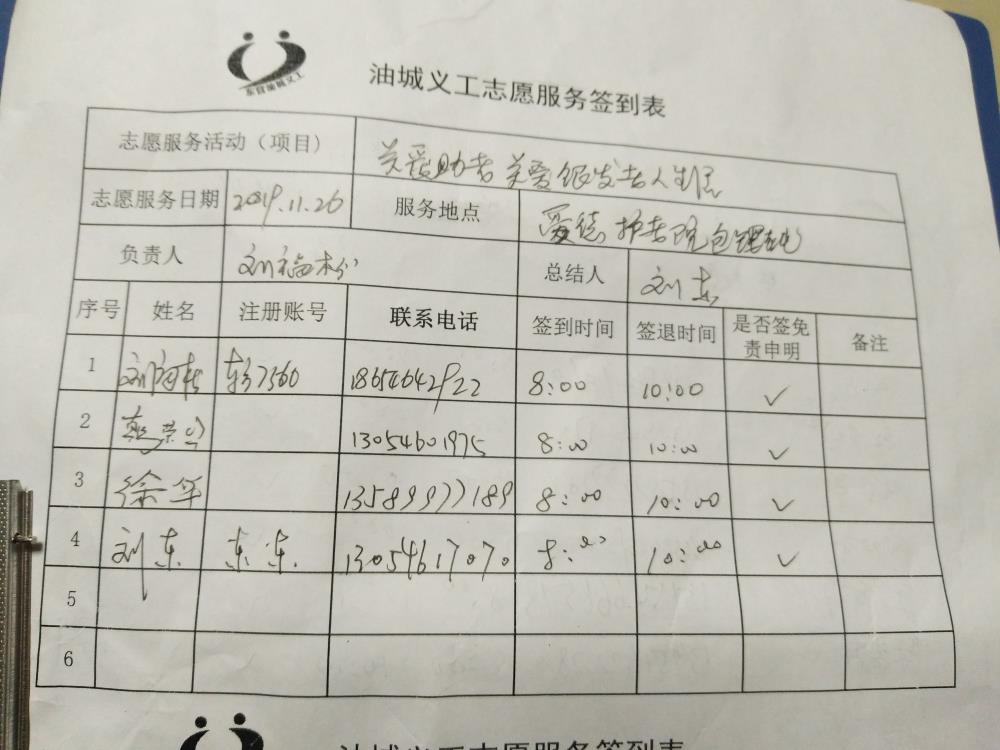 东营油城义工
油城义工志愿服务签到表
志愿服务活动（项目） 关爱助老 关爱银发老人生活
志愿服务日期 2019.11.26 服务地点 爱德护老院包
负责人 刘福 总结人 刘东
序号 姓名 注册账号 联系电话 签到时间 签退时间 是否签免责申明 备注
1 刘 7560 18654642922 8:00 10:00 ✓
2 13054601975 8:00 10:00 ✓
3 徐军 13589977189 8:00 10:00 ✓
4 刘东 东东. 13054617070 8:00 10:00 ✓
5
6
油城义工志愿服务签到表